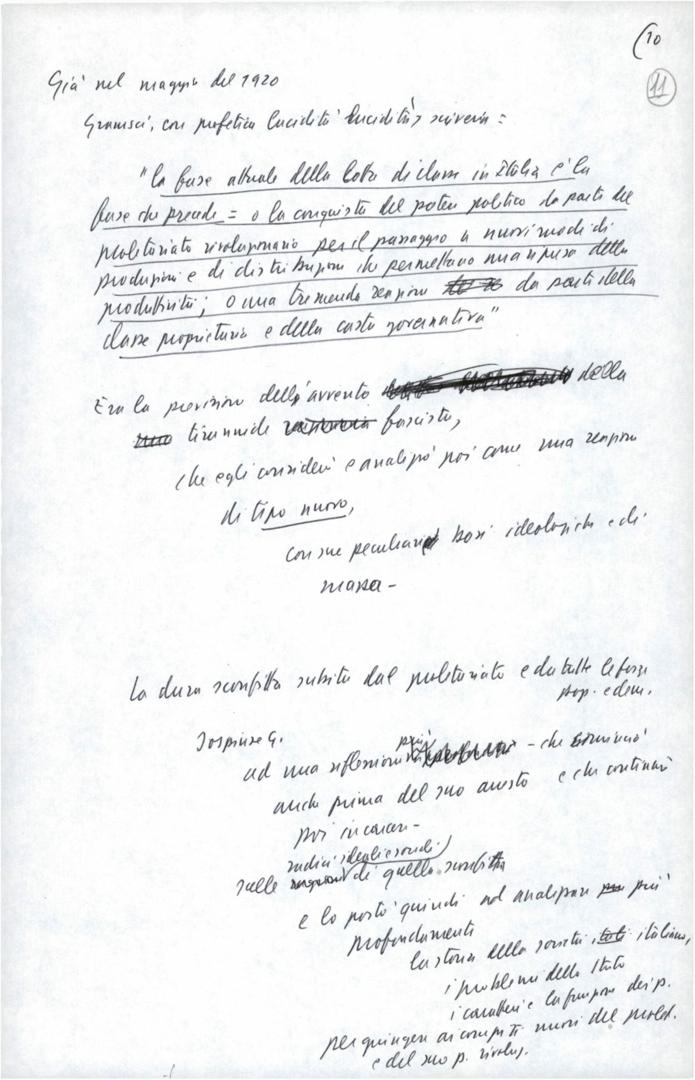 (10
11
Già nel maggio del 1920
Gramsci, con profetica lucidità lucidità, scriveva:
"la fase attuale della lotta di classe in Italia è la
fase che precede = o la conquista del potere politico da parte del
proletariato rivoluzionario per il passaggio a nuovi modi di
produzione e di distribuzione che permettano una ripresa della
produttività; o una tremenda reazione da parte della
classe proprietaria e della casta governativa"
Era la previsione dell'avvento della
tirannide fascista,
che egli considerò e analizzò poi come una reazione
di tipo nuovo,
con sue peculiari basi ideologiche e di
massa -
La dura sconfitta subita dal proletariato e da tutte le forze
pop. e dem.
sospinse G.
ad una riflessione più - che cominciò
anche prima del suo arresto e che continuò
poi in carcere -
radici ideali e sociali
sulle di quella sconfitta
e lo portò quindi ad analizzare più
profondamente
la storia della società italiana,
i problemi dello Stato
i caratteri e la funzione dei p.
per giungere ai compiti nuovi del prolet.
e del suo p. rivoluz.